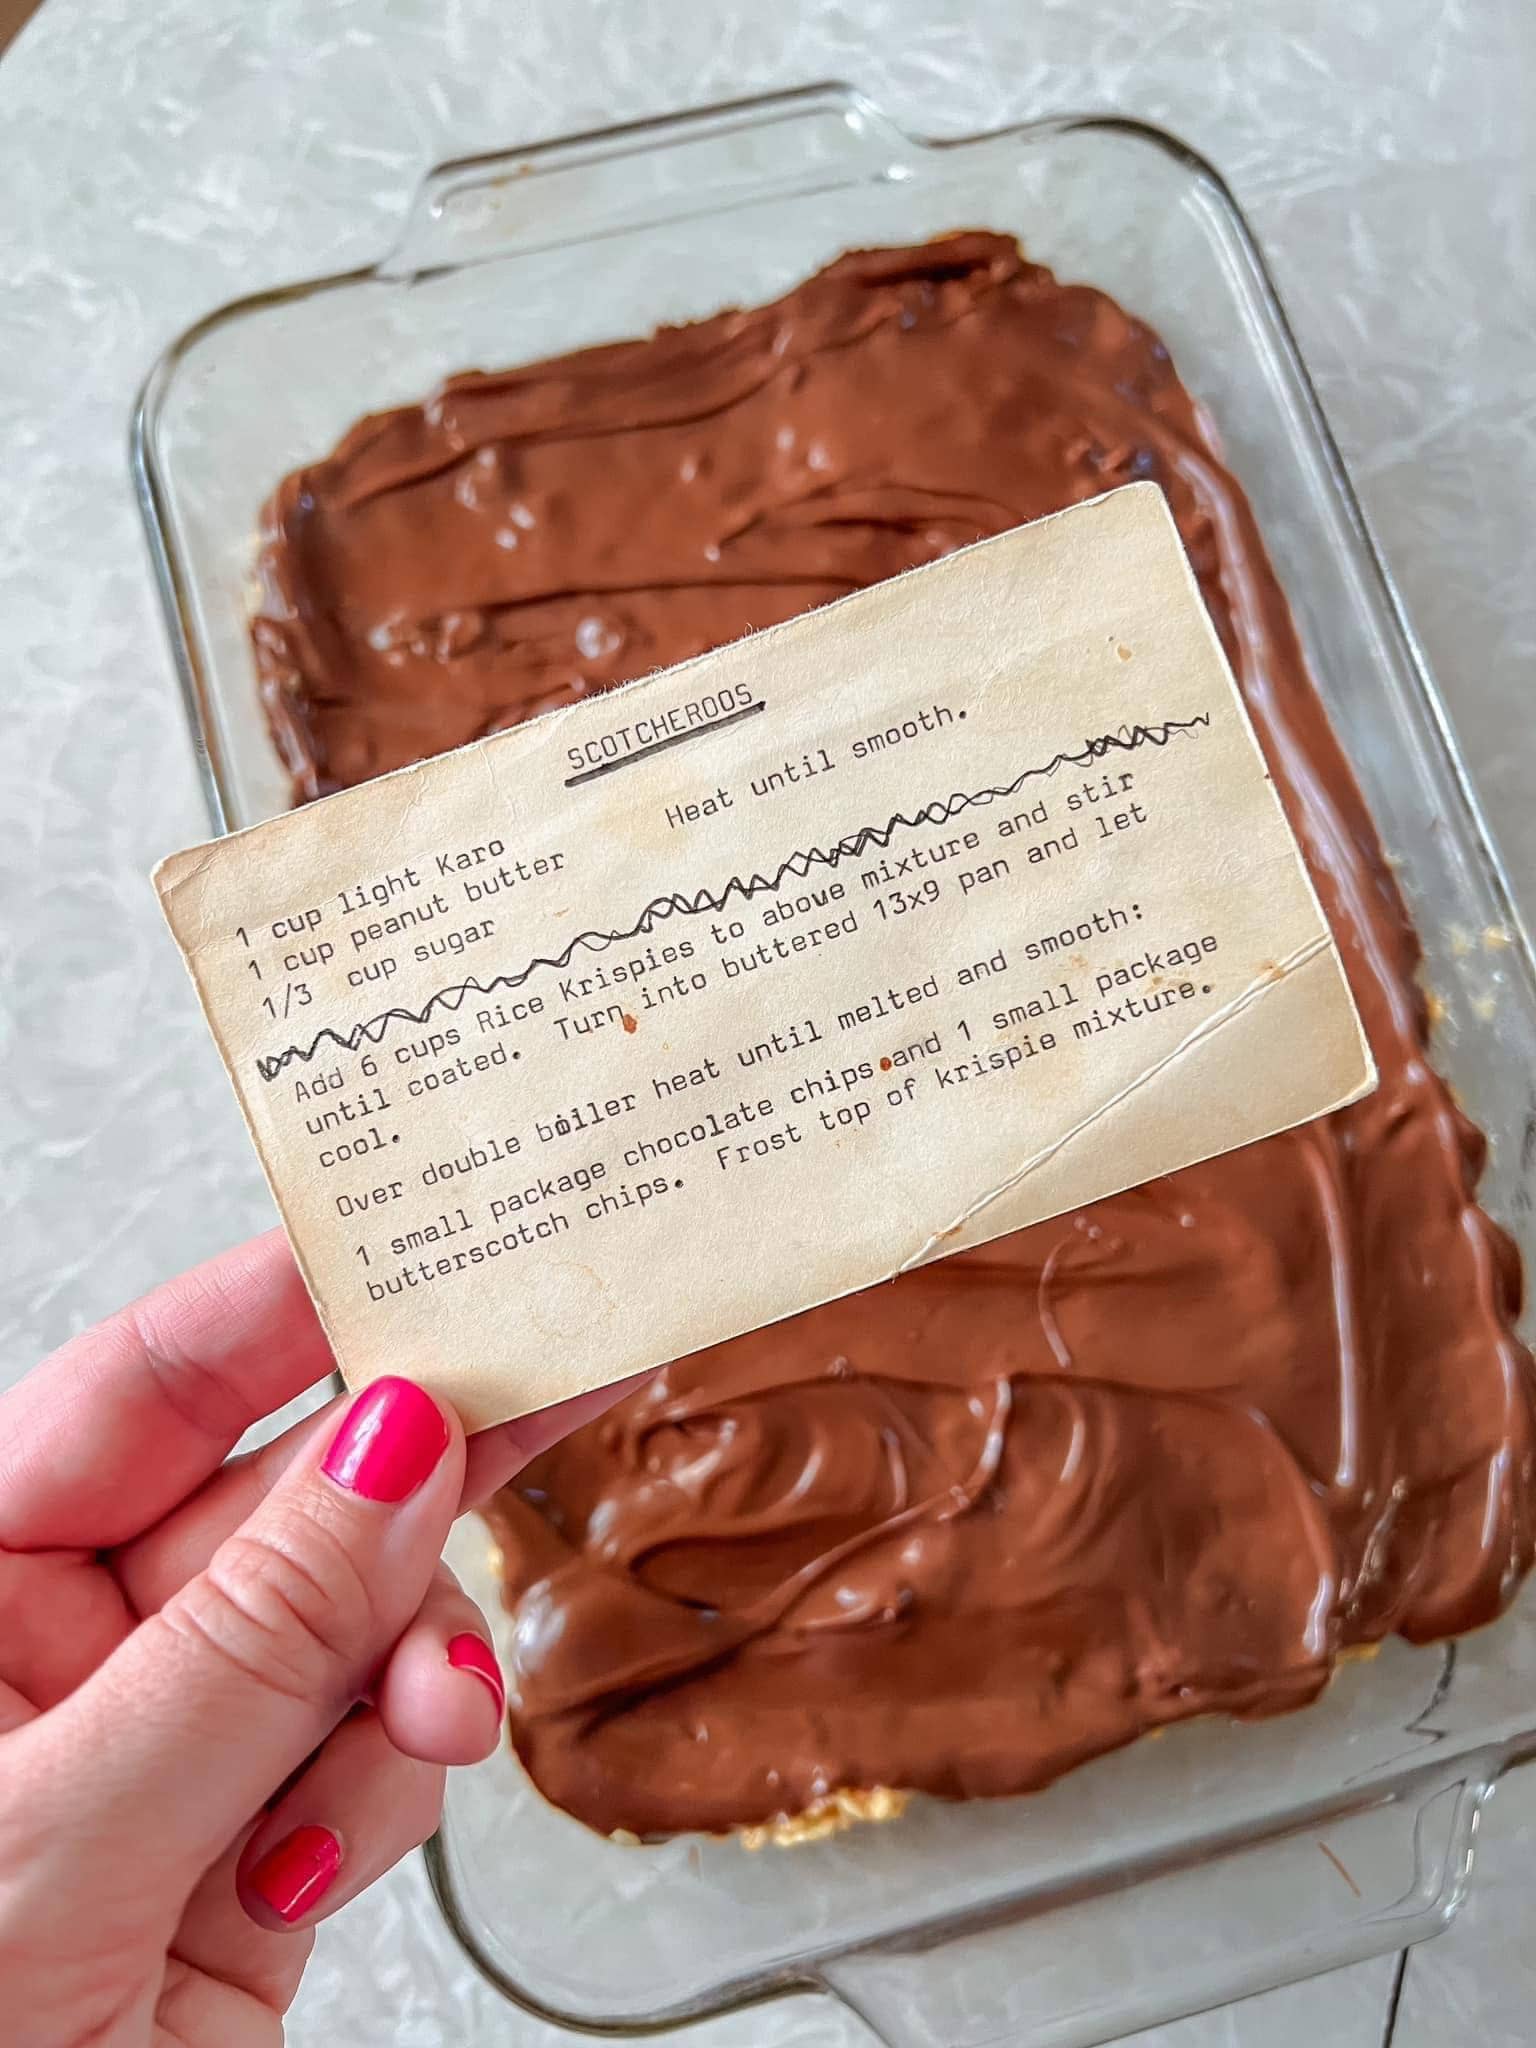 SCOTCHEROOS
1 cup light Karo
1 cup peanut butter Heat until smooth.
1/3 cup sugar
Add 6 cups Rice Krispies to above mixture and stir
until coated. Turn into buttered 13x9 pan and let
cool.
Over double boiler heat until melted and smooth:
1 small package chocolate chips and 1 small package
butterscotch chips. Frost top of krispie mixture.